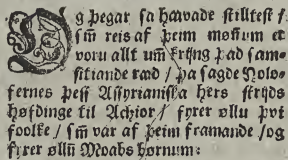 Og þegar sa haavade stilltest /
sm̃ reis af þeim moñum er
voru allt um kring þad sam-
sitiande rad / þa sagde Holo-
fernes þess Assyrianiska hers stryds
høfdinge til Achior / fyrer øllu þvi
foolke / sm̃ var af þeim framande / og
fyrer øllũ Moabs børnum: